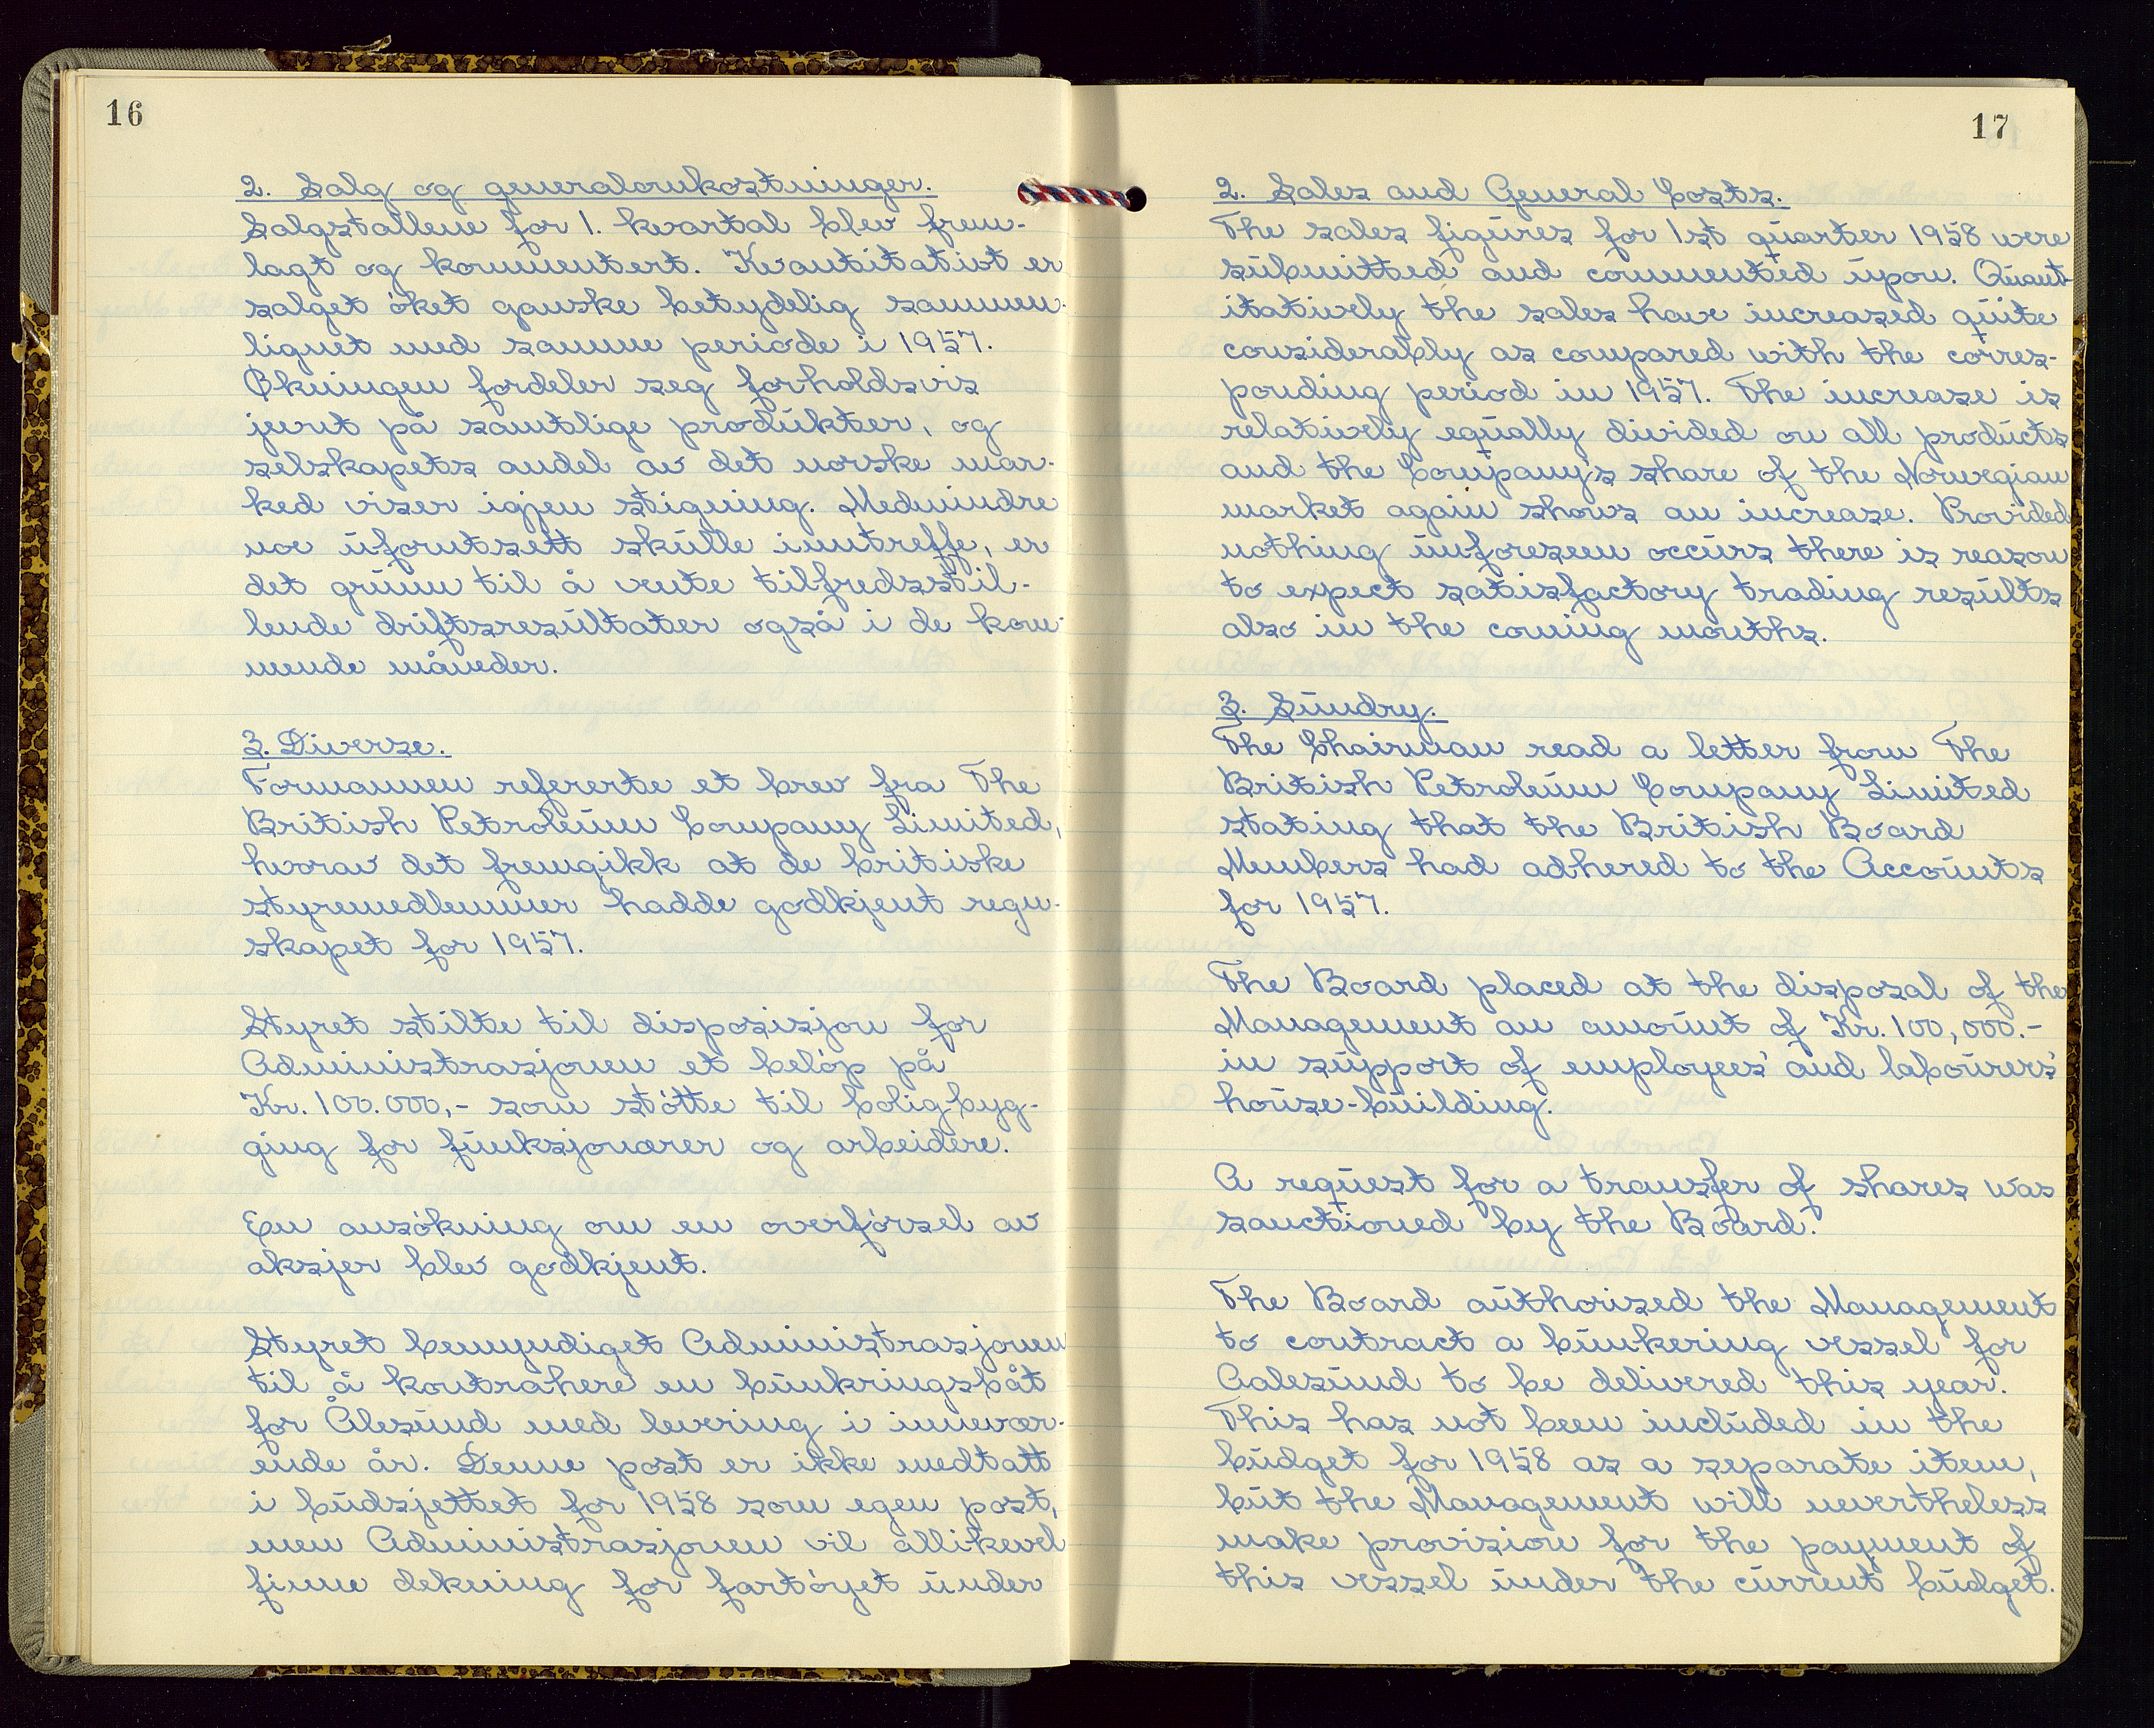 16
2. Salg og generalomkostninger.
Salgstallene for 1. kvartal blev frem-
lagt og kommentert. Kvantitativt er
salget øket ganske betydelig sammen-
lignet med samme periode i 1957.
Økningen fordeler seg forholdsvis
jevnt på samtlige produkter, og
selskapets andel av det norske mar-
ked viser igjen stigning. Medmindre
noe uforutsett skulle inntreffe, er
det grunn til å vente tilfredsstil-
lende driftsresultater også i de kom-
mende måneder.
3. Diverse.
Formannen refererte et brev fra The
British Petroleum Company Limited,
hvorav det fremgikk at de britiske
styremedlemmer hadde godkjent regn-
skapet for 1957.
Styret stilte til disposisjon for
Administrasjonen et beløp på
Kr. 100.000,- som støtte til boligbyg-
ging for funksjonærer og arbeidere.
En ansøkning om en overførsel av
aksjer blev godkjent.
Styret bemyndiget Administrasjonen
til å kontrahere en bunkringsbåt
for Ålesund med levering i innevær-
ende år. Denne post er ikke medtatt
i budsjettet for 1958 som egen post,
men Administrasjonen vil allikevel
finne dekning for fartøyet under
17
2. Sales and General Costs.
The sales figures for 1st quarter 1958 were
submitted and commented upon. Quant-
itatively the sales have increased quite
considerably as compared with the corres-
ponding period in 1957. The increase is
relatively equally divided on all products
and the Company's share of the Norwegian
market again shows an increase. Provided
nothing unforeseen occurs there is reason
to expect satisfactory trading results
also in the coming months.
3. Sundry.
The Chairman read a letter from The
British Petroleum Company Limited
stating that the British Board
Members had adhered to the Accounts
for 1957.
The Board placed at the disposal of the
Management an amount of Kr. 100,000.-
in support of employees' and labourers'
house-building.
A request for a transfer of shares was
sanctioned by the Board.
The Board authorized the Management
to contract a bunkering vessel for
Aalesund to be delivered this year.
This has not been included in the
budget for 1958 as a separate item,
but the Management will nevertheless
make provision for the payment of
this vessel under the current budget.